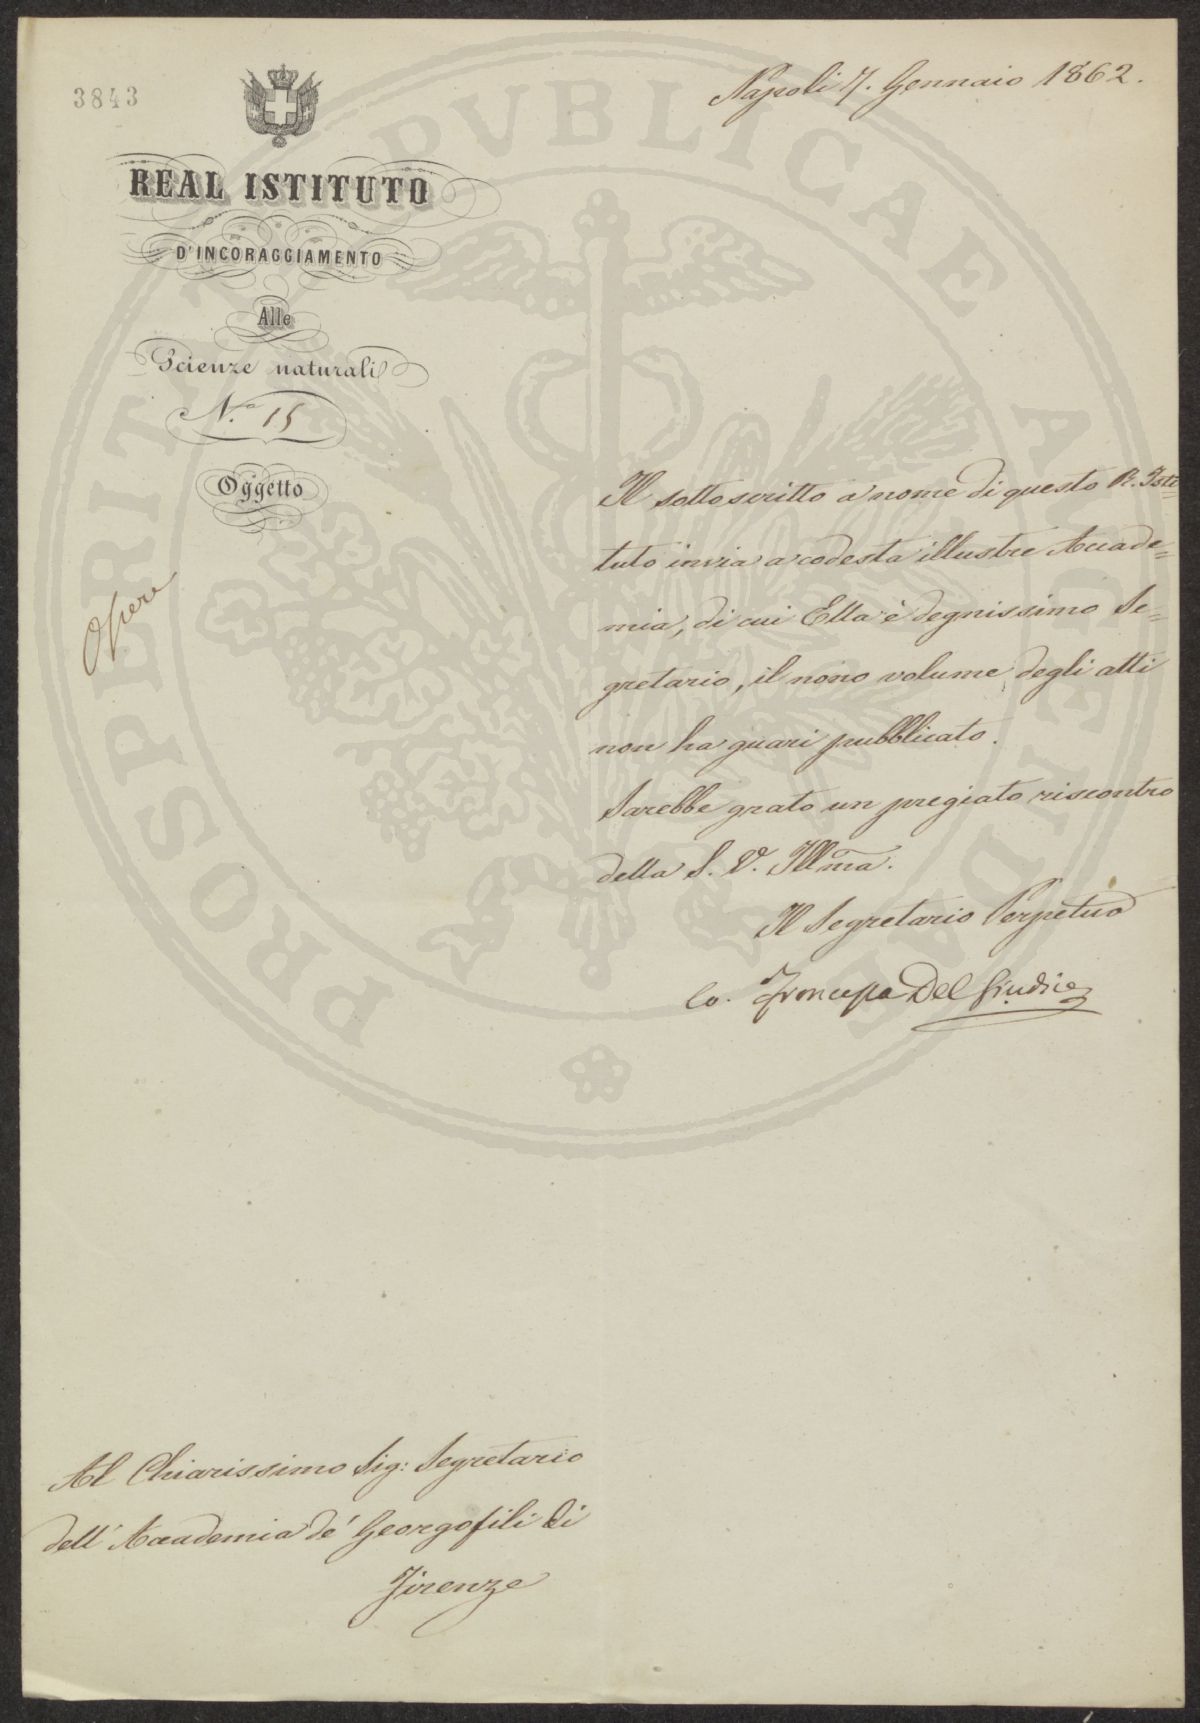 3843
Napoli 7. Gennaio 1862.
REAL ISTITUTO
D'INCORAGGIAMENTO
Alle
Scienze naturali
N.º 15
Oggetto
Opere
Il sottoscritto a nome di questo R. Isti=
tuto invia a codesta illustre Accade=
mia, di cui Ella è degnissimo Se=
gretario, il nono volume degli atti
non ha guari pubblicato.
Sarebbe grato un pregiato riscontro
della S. V. Illma.
Il Segretario Perpetuo
Co. Francesco Del Giudice
Al Chiarissimo Sig: Segretario
dell'Accademia de' Georgofili di
Firenze
PROSPERITATI PVBLICAE AVGENDAE